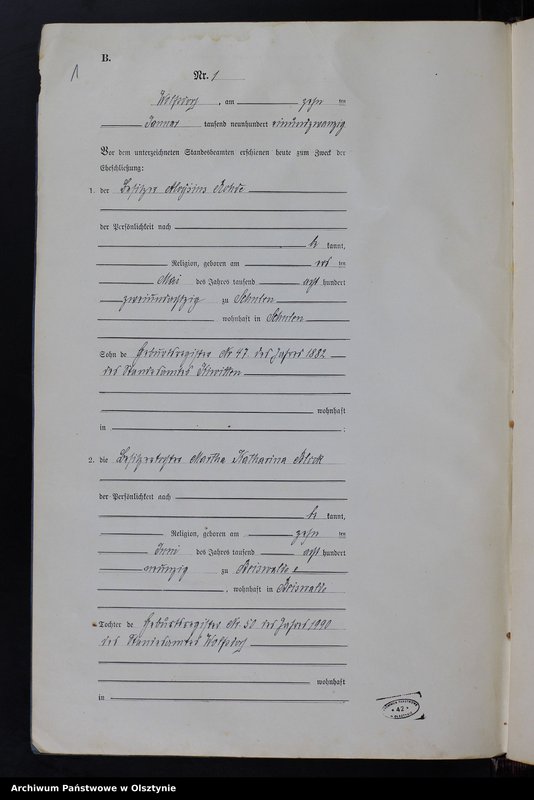 B.
1
Nr. 1
Wolfsdorf, am zehn ten
Januar tausend neunhundert einundzwanzig
Vor dem unterzeichneten Standesbeamten erschienen heute zum Zweck der
Eheschließung:
1. der Besitzer Aloysius Rohde
der Persönlichkeit nach
be kannt,
Religion, geboren am ten
Mai des Jahres tausend acht hundert
zweiundachtzig zu Schulen
wohnhaft in Schulen
Sohn de Geburtsregister Nr 47 des Jahres 1882
des Standesamtes
wohnhaft
in ;
2. die Besitzertochter Martha Katharina Block
der Persönlichkeit nach
be kannt,
Religion, geboren am zehn ten
Juni des Jahres tausend acht hundert
neunzig zu
, wohnhaft in
Tochter de Geburtsregister Nr. 50 des Jahres
des Standesamtes Wolfsdorf
wohnhaft
in
* 42 *
Archiwum Państwowe w Olsztynie